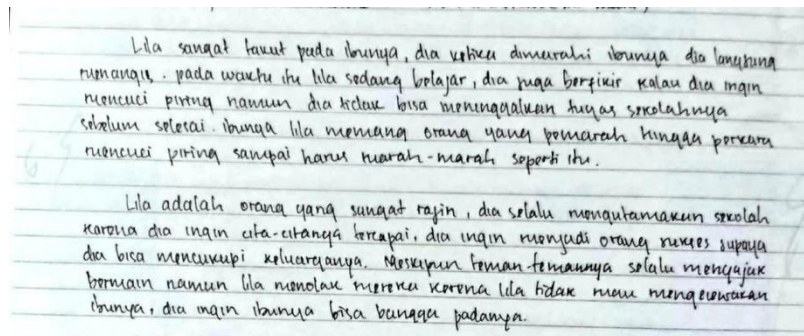 Lila sangat takut pada ibunya, dia ketika dimarahi ibunya dia langsung
menangis. pada waktu itu lila sedang belajar, dia juga berfikir kalau dia ingin
mencuci piring namun dia tidak bisa meninggalkan tugas sekolahnya
sebelum selesai. ibunya lila memang orang yang pemarah hingga perkara
mencuci piring sampai harus marah-marah seperti itu.
Lila adalah orang yang sangat rajin, dia selalu mengutamakan sekolah
karena dia ingin cita-citanya tercapai, dia ingin menjadi orang sukses supaya
dia bisa mencukupi keluarganya. Meskipun teman-temannya selalu mengajak
bermain namun lila menolak mereka karena lila tidak mau mengecewakan
ibunya, dia ingin ibunya bisa bangga padanya.